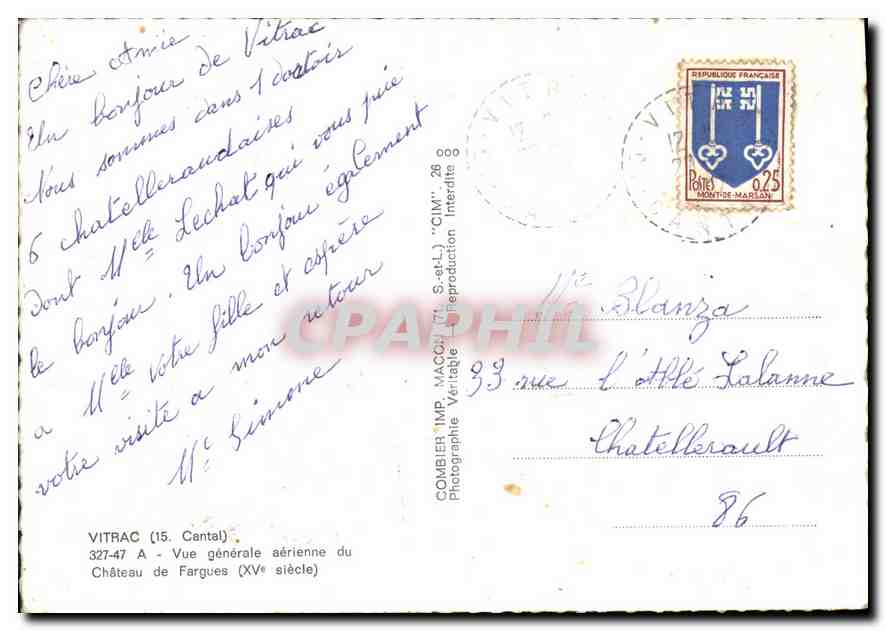 Chère Amie
Un bonjour de Vitrac
Nous sommes dans 1 dortoir
6 chatelleraudaises
dont Melle Lechat qui vous prie
le bonjour. Un bonjour également
a Melle votre fille et espère
votre visite a mon retour
Me Simone
VITRAC (15. Cantal)
327-47 A - Vue générale aérienne du
Château de Fargues (XVe siècle)
COMBIER IMP. MACON (71. S.-et-L.) "CIM" 26
Photographie Véritable - Reproduction Interdite
REPUBLIQUE FRANÇAISE
POSTES 0,25
MONT-DE-MARSAN
VITRAC
CANTAL
Me Blanza
33 rue l'Abbé Lalanne
Chatellerault
86
CPAPHIL